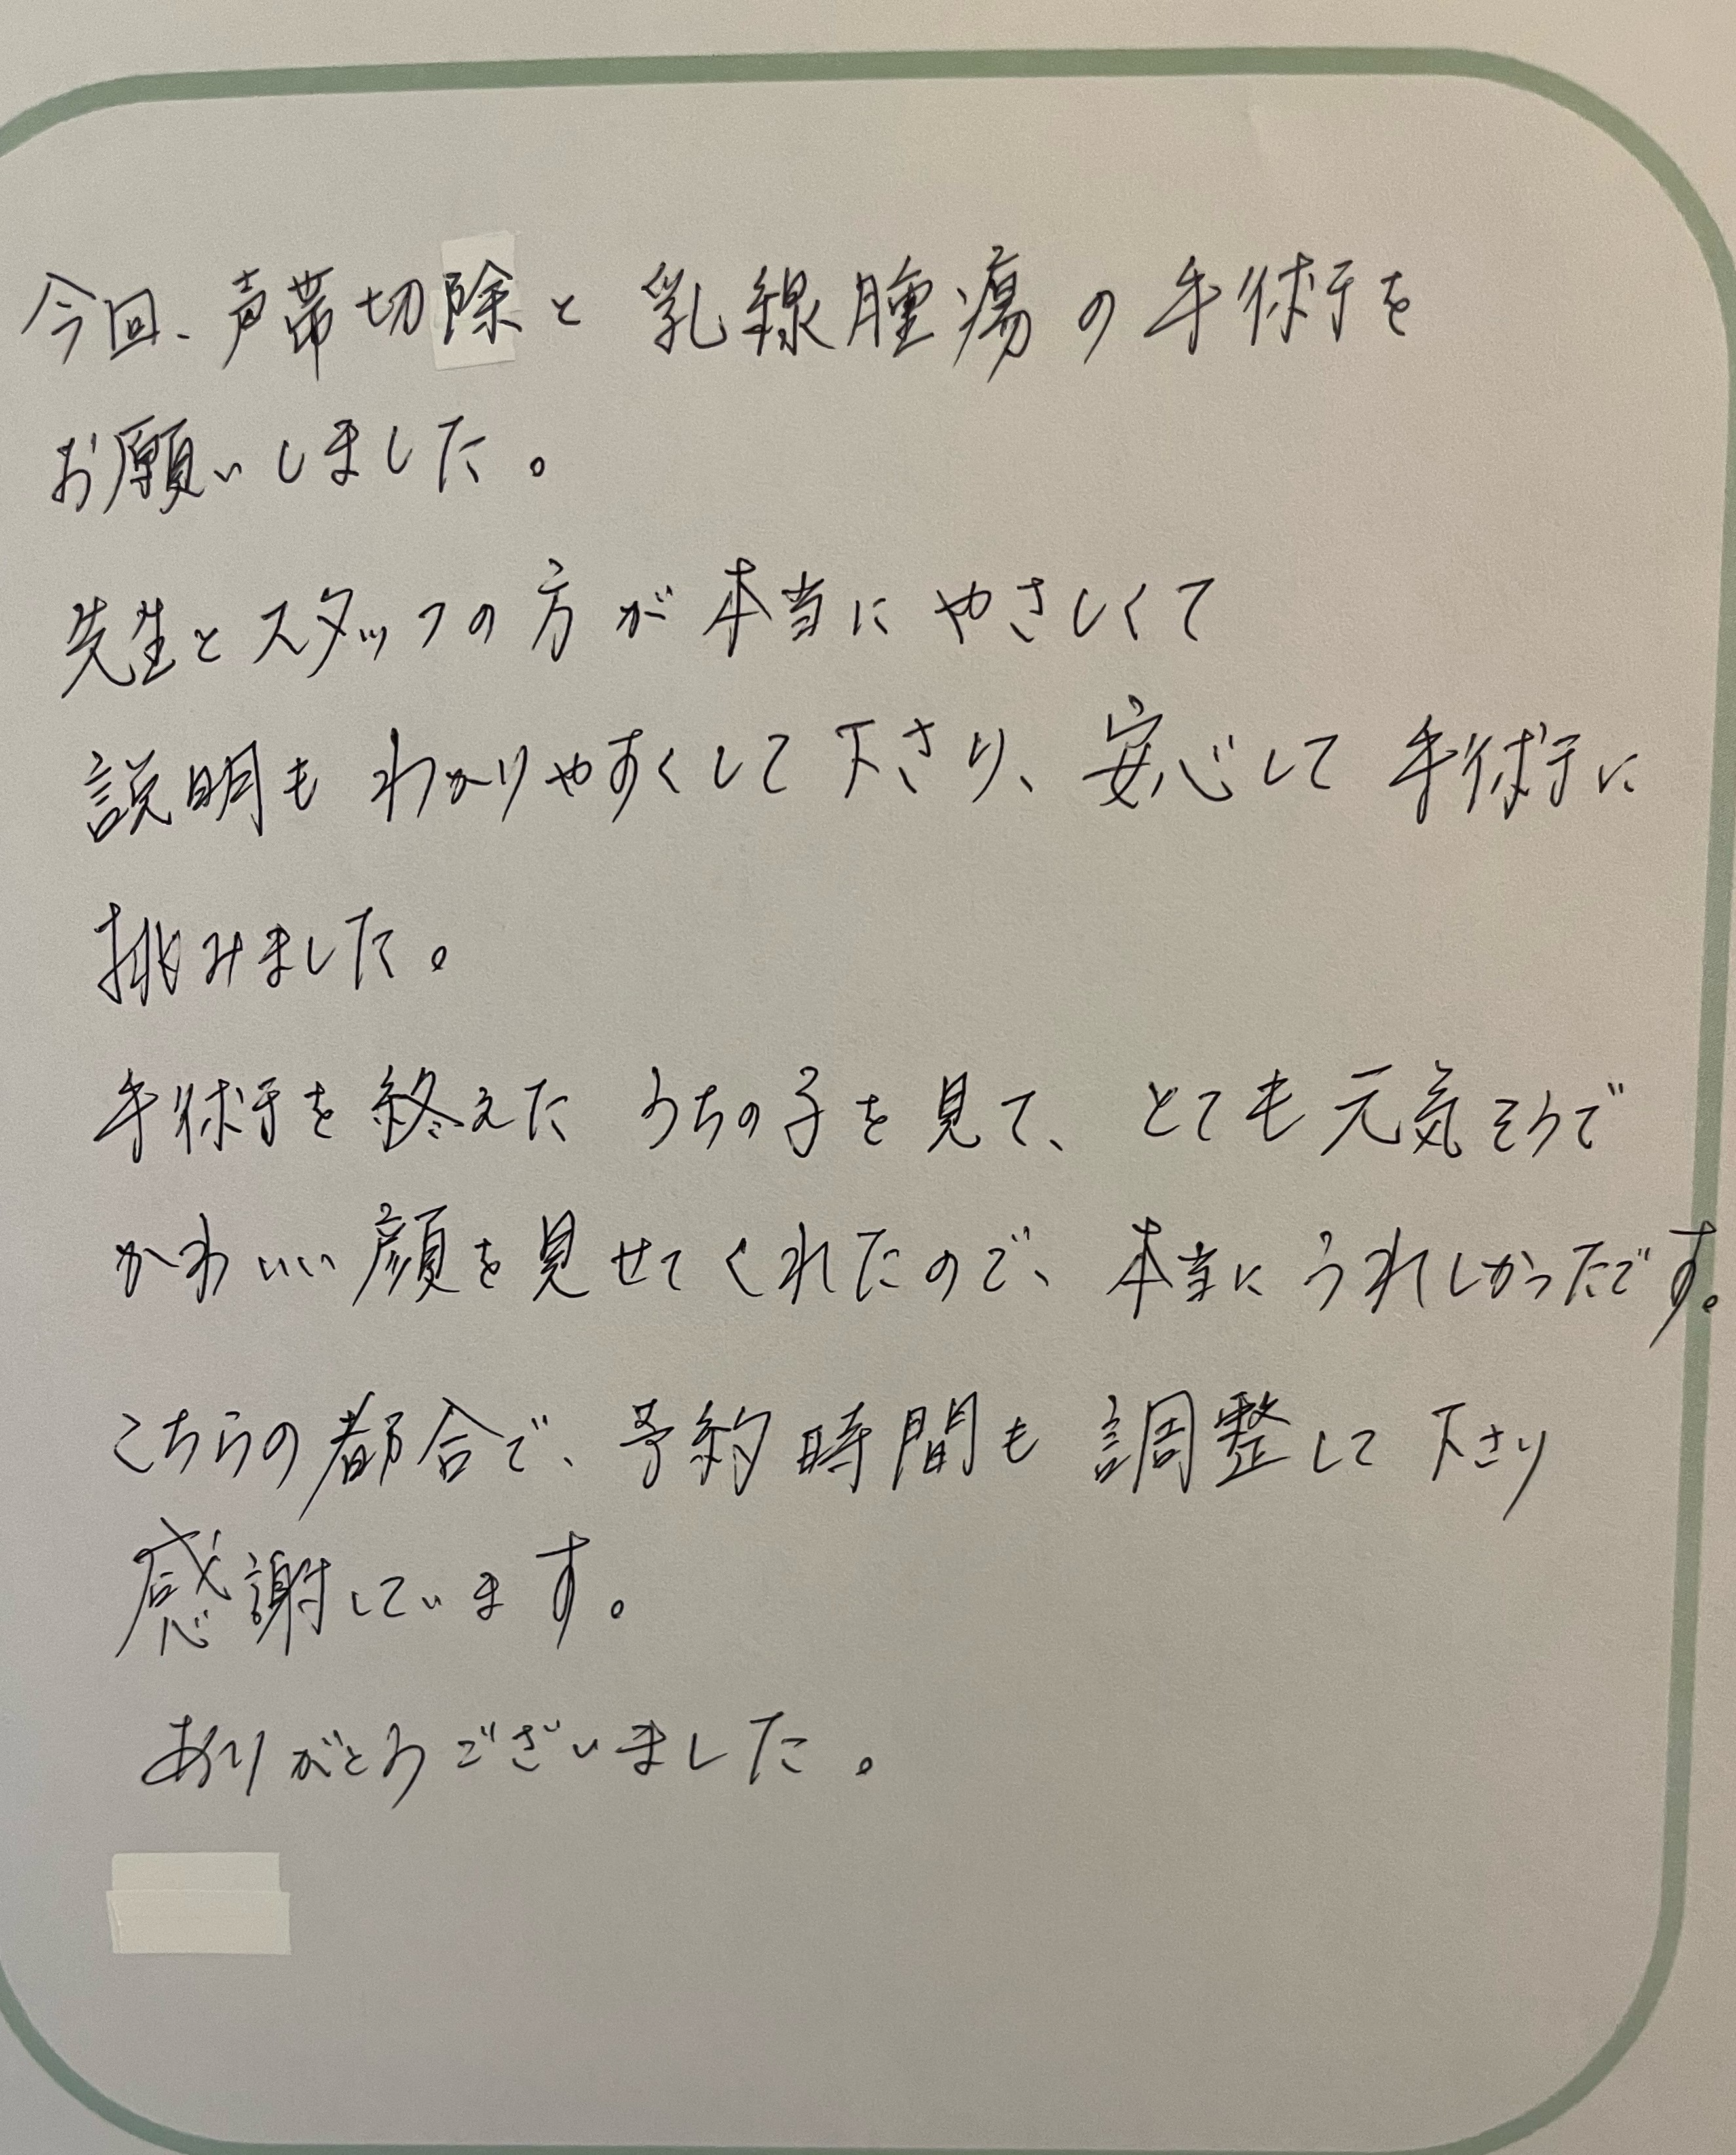 今回、声帯切除と乳線腫瘍の手術を
お願いしました。
先生とスタッフの方が本当にやさしくて
説明もわかりやすくして下さり、安心して手術に
挑みました。
手術を終えたうちの子を見て、とても元気そうで
かわいい顔を見せてくれたので、本当にうれしかったです。
こちらの都合で、予約時間も調整して下さり
感謝しています。
ありがとうございました。